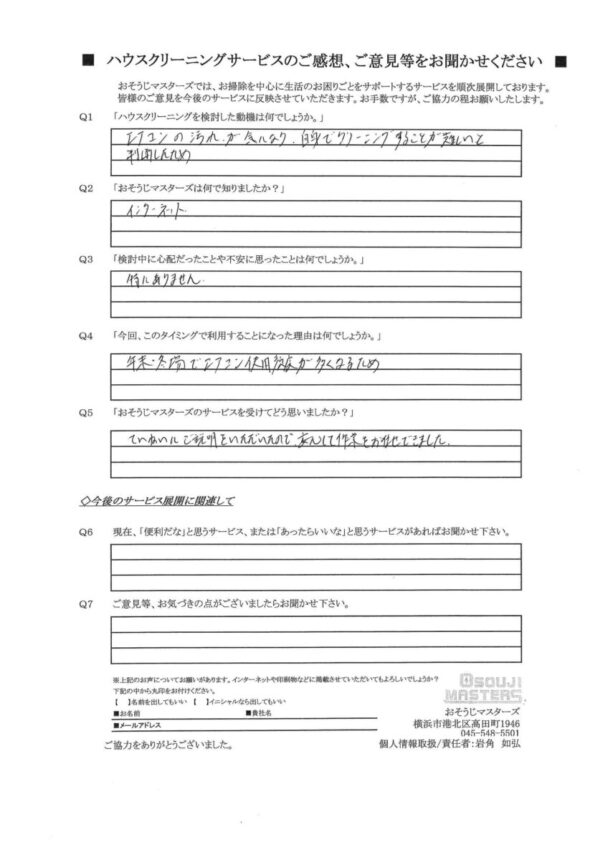 ■ ハウスクリーニングサービスのご感想、ご意見等をお聞かせください ■
おそうじマスターズでは、お掃除を中心に生活のお困りごとをサポートするサービスを順次展開しております。
皆様のご意見を今後のサービスに反映させていただきます。お手数ですが、ご協力の程お願いしたします。
Q1 「ハウスクリーニングを検討した動機は何でしょうか。」
エアコンの汚れが気になり、自身でクリーニングすることが難しいと
利用したため
Q2 「おそうじマスターズは何で知りましたか？」
インターネット
Q3 「検討中に心配だったことや不安に思ったことは何でしょうか。」
特にありません。
Q4 「今回、このタイミングで利用することになった理由は何でしょうか。」
年末・冬場でエアコン使用頻度が多くなるため
Q5 「おそうじマスターズのサービスを受けてどう思いましたか？」
ていねいにご説明をいただいたので、安心して作業をお任せできました。
◇今後のサービス展開に関連して
Q6 現在、「便利だな」と思うサービス、または「あったらいいな」と思うサービスがあればお聞かせ下さい。
Q7 ご意見等、お気づきの点がございましたらお聞かせ下さい。
※上記のお声についてお願いがあります。インターネットや印刷物などに掲載させていただいてもよろしいでしょうか？
下記の中から丸印をお付けください。
【 】名前を出してもいい 【 】イニシャルなら出してもいい
■お名前 ■貴社名
■メールアドレス
ご協力をありがとうございました。
OSOUJI
MASTERS.
おそうじマスターズ
横浜市港北区高田町1946
045-548-5501
個人情報取扱/責任者：岩角 如弘